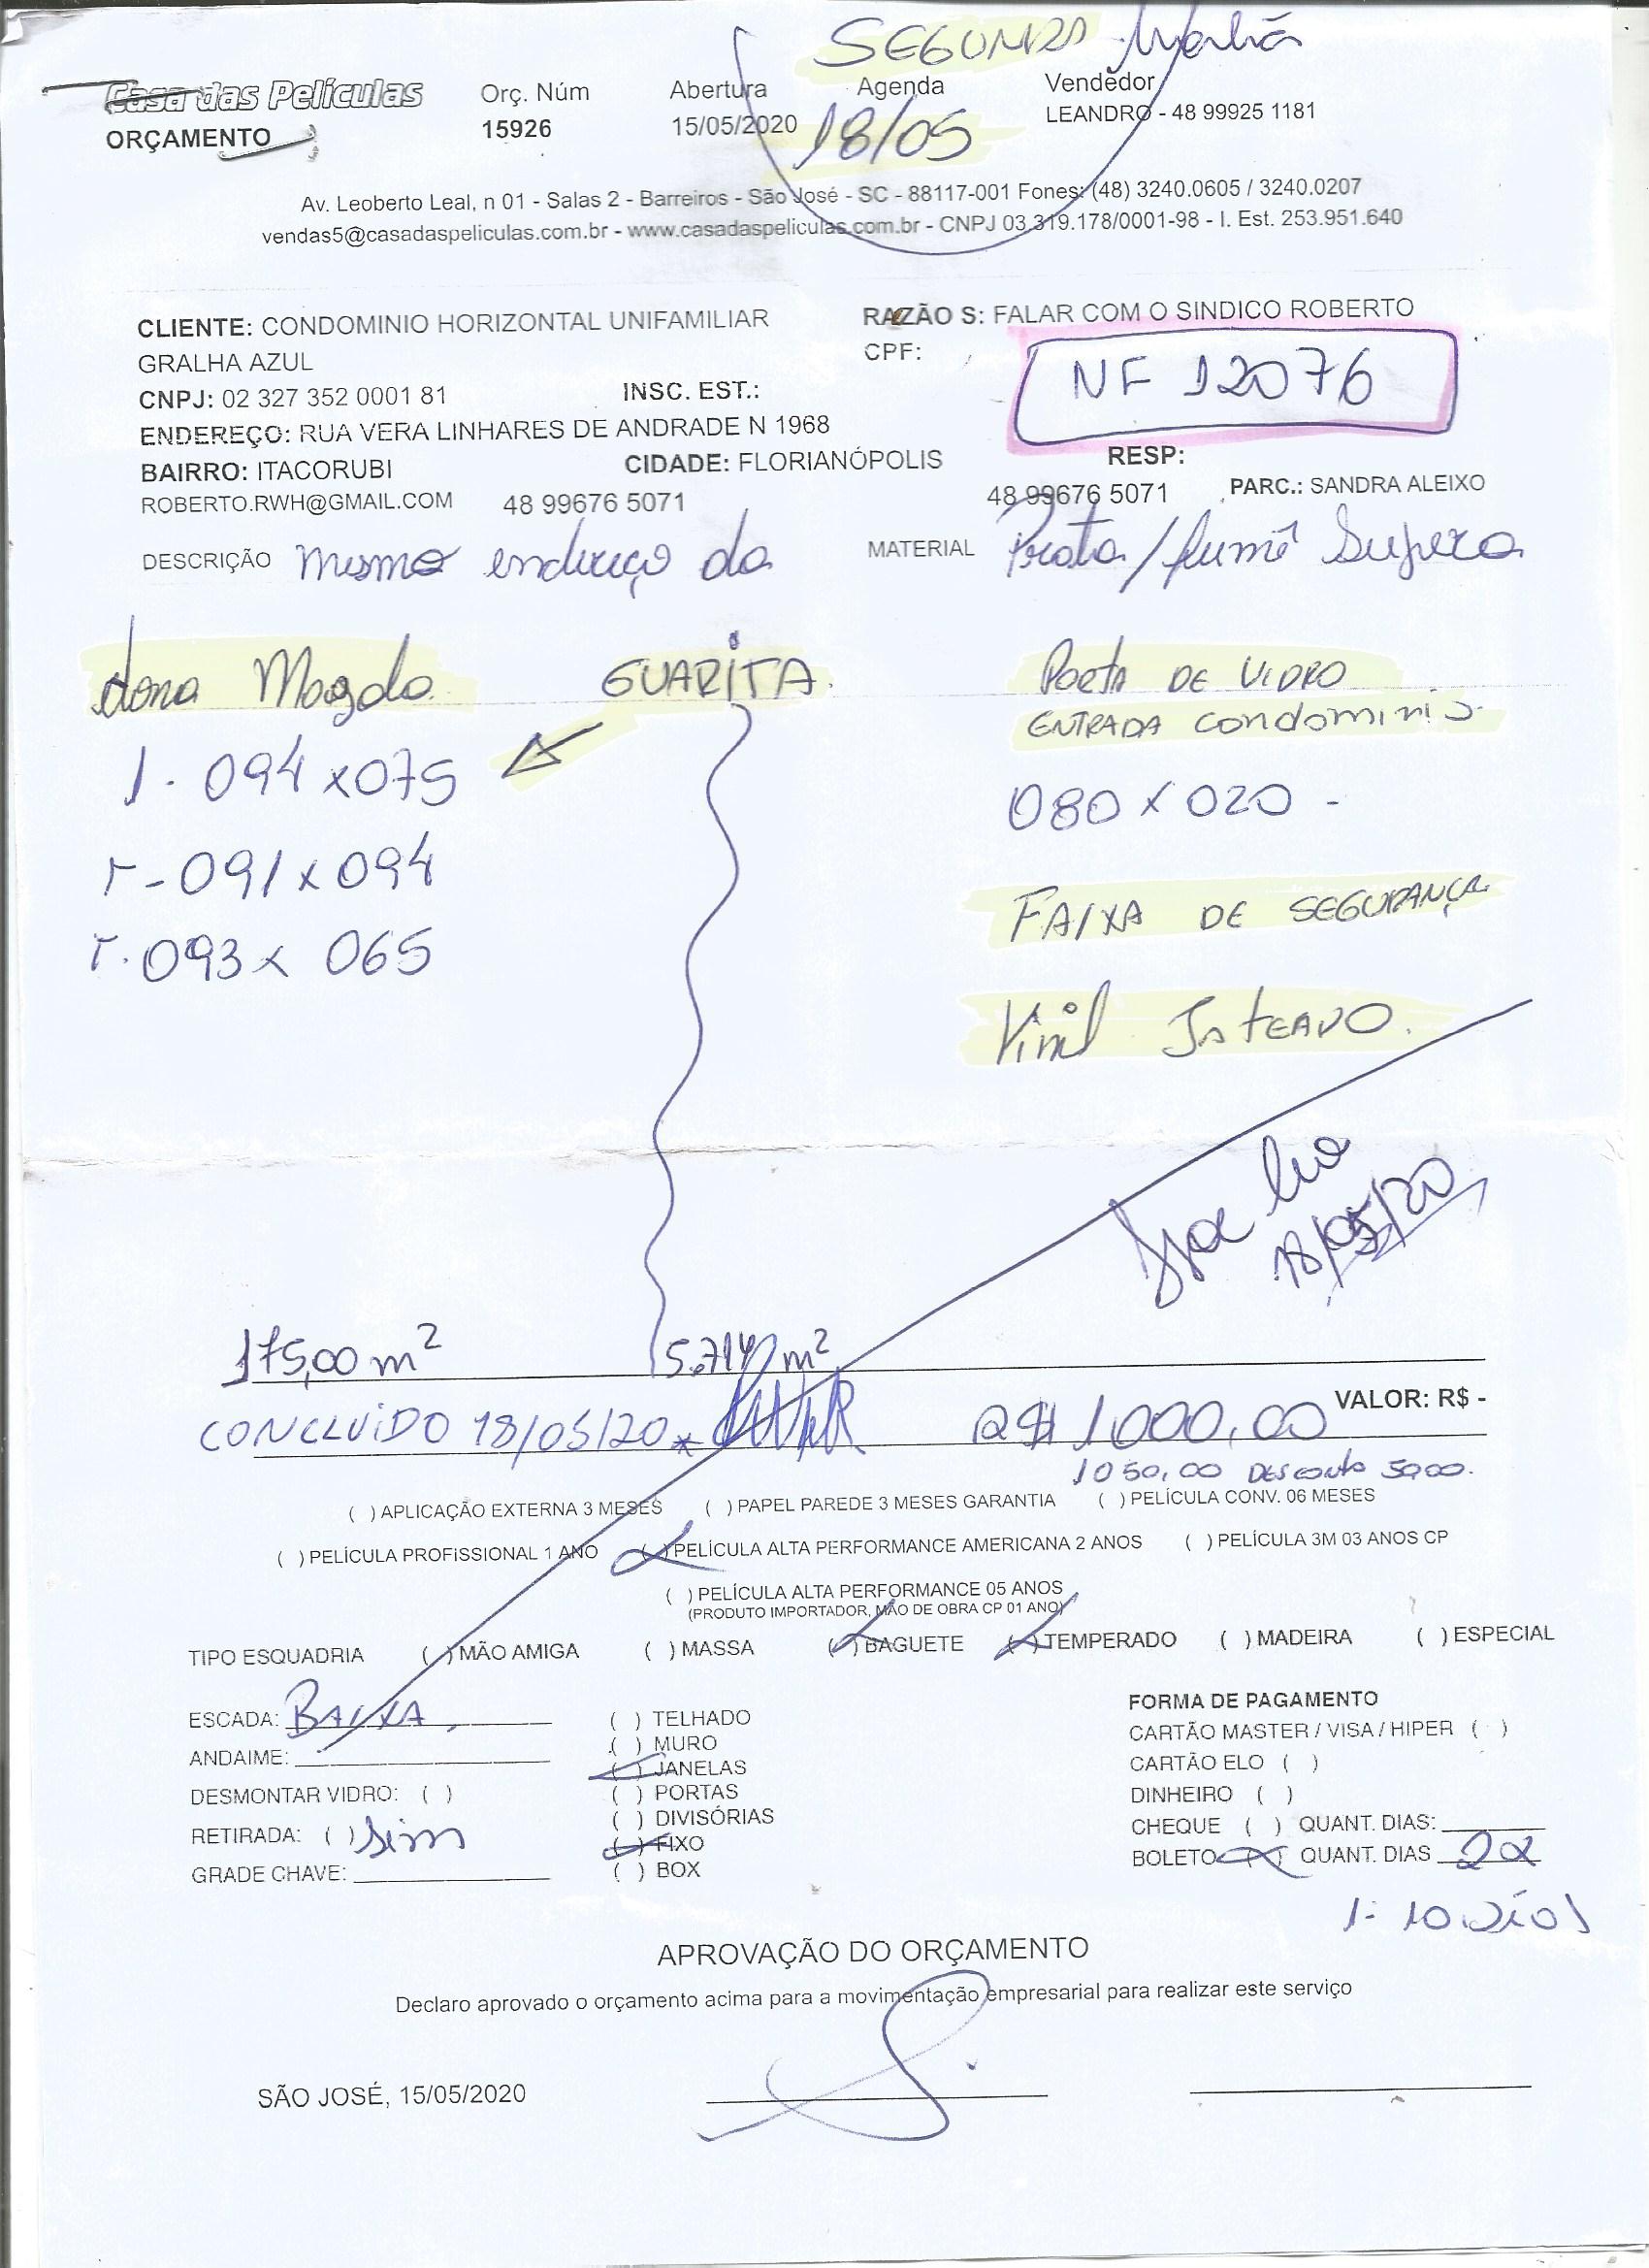 SEGUNDA Manhã
Casa das Películas
ORÇAMENTO
Orç. Núm
15926
Abertura
15/05/2020
Agenda
18/05
Vendedor
LEANDRO - 48 99925 1181
Av. Leoberto Leal, n 01 - Salas 2 - Barreiros - São José - SC - 88117-001 Fones: (48) 3240.0605 / 3240.0207
vendas5@casadaspeliculas.com.br - www.casadaspeliculas.com.br - CNPJ 03.319.178/0001-98 - I. Est. 253.951.640
CLIENTE: CONDOMINIO HORIZONTAL UNIFAMILIAR
GRALHA AZUL
RAZÃO S: FALAR COM O SINDICO ROBERTO
CPF:
NF 12076
CNPJ: 02 327 352 0001 81 INSC. EST.:
ENDEREÇO: RUA VERA LINHARES DE ANDRADE N 1968
BAIRRO: ITACORUBI CIDADE: FLORIANÓPOLIS RESP:
ROBERTO.RWH@GMAIL.COM 48 99676 5071 48 99676 5071 PARC.: SANDRA ALEIXO
DESCRIÇÃO mesmo endereço da
MATERIAL Prata / fumê Supera
dona Magda GUARITA.
1 - 094 x 075
- 091 x 094
093 x 065
Porta DE VIDRO
ENTRADA condominio
080 x 020 -
FAIXA DE SEGURANÇA
Vinil JATEADO.
18/05/20
175,00 m²
m²
CONCLUÍDO 18/05/20
R$ 1000,00 VALOR: R$ -
1050,00 DESconto 5000.
( ) APLICAÇÃO EXTERNA 3 MESES ( ) PAPEL PAREDE 3 MESES GARANTIA ( ) PELÍCULA CONV. 06 MESES
( ) PELÍCULA PROFISSIONAL 1 ANO (x) PELÍCULA ALTA PERFORMANCE AMERICANA 2 ANOS ( ) PELÍCULA 3M 03 ANOS CP
( ) PELÍCULA ALTA PERFORMANCE 05 ANOS
(PRODUTO IMPORTADOR, MÃO DE OBRA CP 01 ANO)
TIPO ESQUADRIA ( ) MÃO AMIGA ( ) MASSA (x) BAGUETE (x) TEMPERADO ( ) MADEIRA ( ) ESPECIAL
ESCADA: BAIXA
ANDAIME:
DESMONTAR VIDRO: ( )
RETIRADA: ( ) Sim
GRADE CHAVE:
( ) TELHADO
( ) MURO
(x) JANELAS
( ) PORTAS
( ) DIVISÓRIAS
(x) FIXO
( ) BOX
FORMA DE PAGAMENTO
CARTÃO MASTER / VISA / HIPER ( )
CARTÃO ELO ( )
DINHEIRO ( )
CHEQUE ( ) QUANT. DIAS:
BOLETO (x) QUANT. DIAS 2x
1 - 10 Dias
APROVAÇÃO DO ORÇAMENTO
Declaro aprovado o orçamento acima para a movimentação empresarial para realizar este serviço
SÃO JOSÉ, 15/05/2020